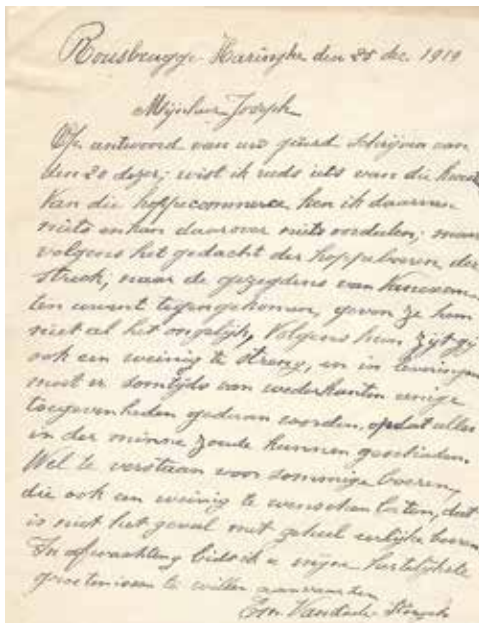 Rousbrugge-Haringhe den 25 dec. 1919
Mijnheer Joseph
Op antwoord van uw geëerd schrijven van
den 20 dezer; wist ik reeds iets van die kwestie
Van die hoppecommerce ken ik daarvan
niets en kan daarover niets oordelen; maar
volgens het gedacht der hoppeboeren der
streek, naar de gezegdens van
ten uwent tegengekomen, geven ze hem
niet al het ongelijk, Volgens hun zijt gij
ook een weinig te streng, en in leveringen
moet er somtijds van wederkanten eenige
toegevenheden gedaan worden, opdat alles
in der minne zoude kunnen geschieden.
Wel te verstaan voor sommige boeren,
die ook een weinig te wenschen laten, dat
is niet het geval met geheel eerlijke boeren
In afwachting bied ik u mijne hertelijkste
groetenissen te willen aanvaarden
Em